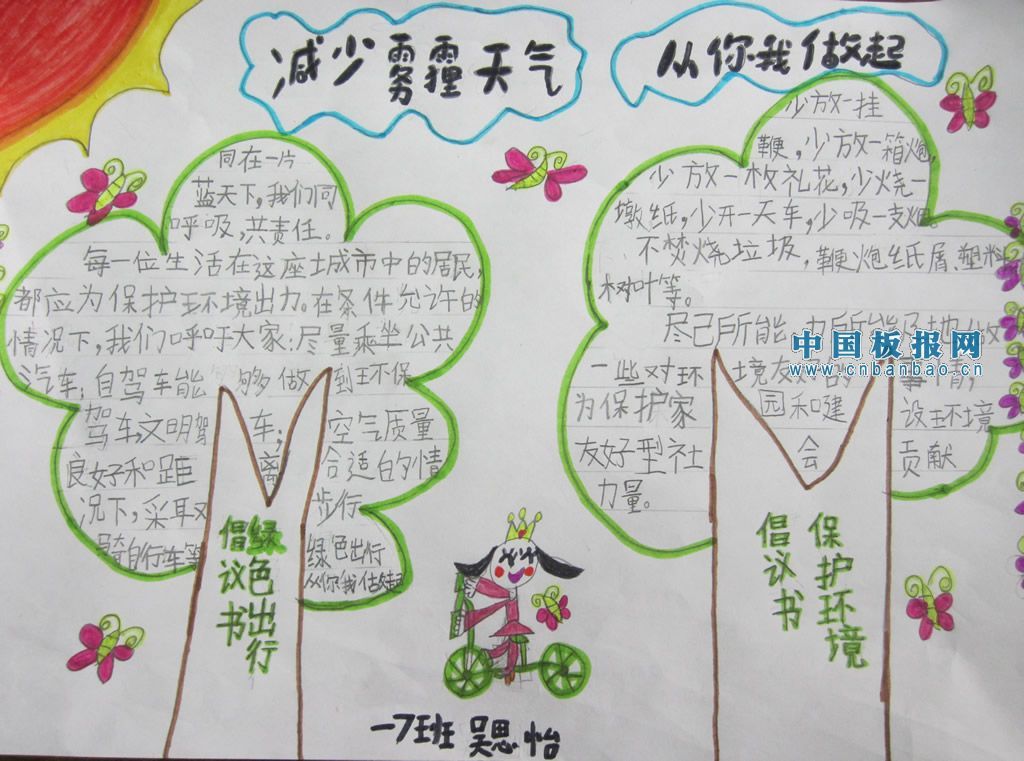 减少雾霾天气
从你我做起
同在一片
蓝天下,我们同
呼吸,共责任。
每一位生活在这座城市中的居民,
都应为保护环境出力。在条件允许的
情况下,我们呼吁大家:尽量乘坐公共
汽车;自驾车能够做到环保
驾车,文明驾车;空气质量
良好和距离合适的情
况下,采取步行
骑自行车等
绿色出行
从你我做起
绿色出行
倡议书
少放一挂
鞭,少放一箱炮,
少放一枚礼花,少烧一
墩纸,少开一天车,少吸一支烟。
不焚烧垃圾,鞭炮纸屑、塑料
树叶等。
尽己所能
一些对环境友好的事情,
为保护家园和建设环境
友好型社会贡献
力量。
保护环境
倡议书
中国板报网
www.cnbanbao.cn
一7班 吴思怡